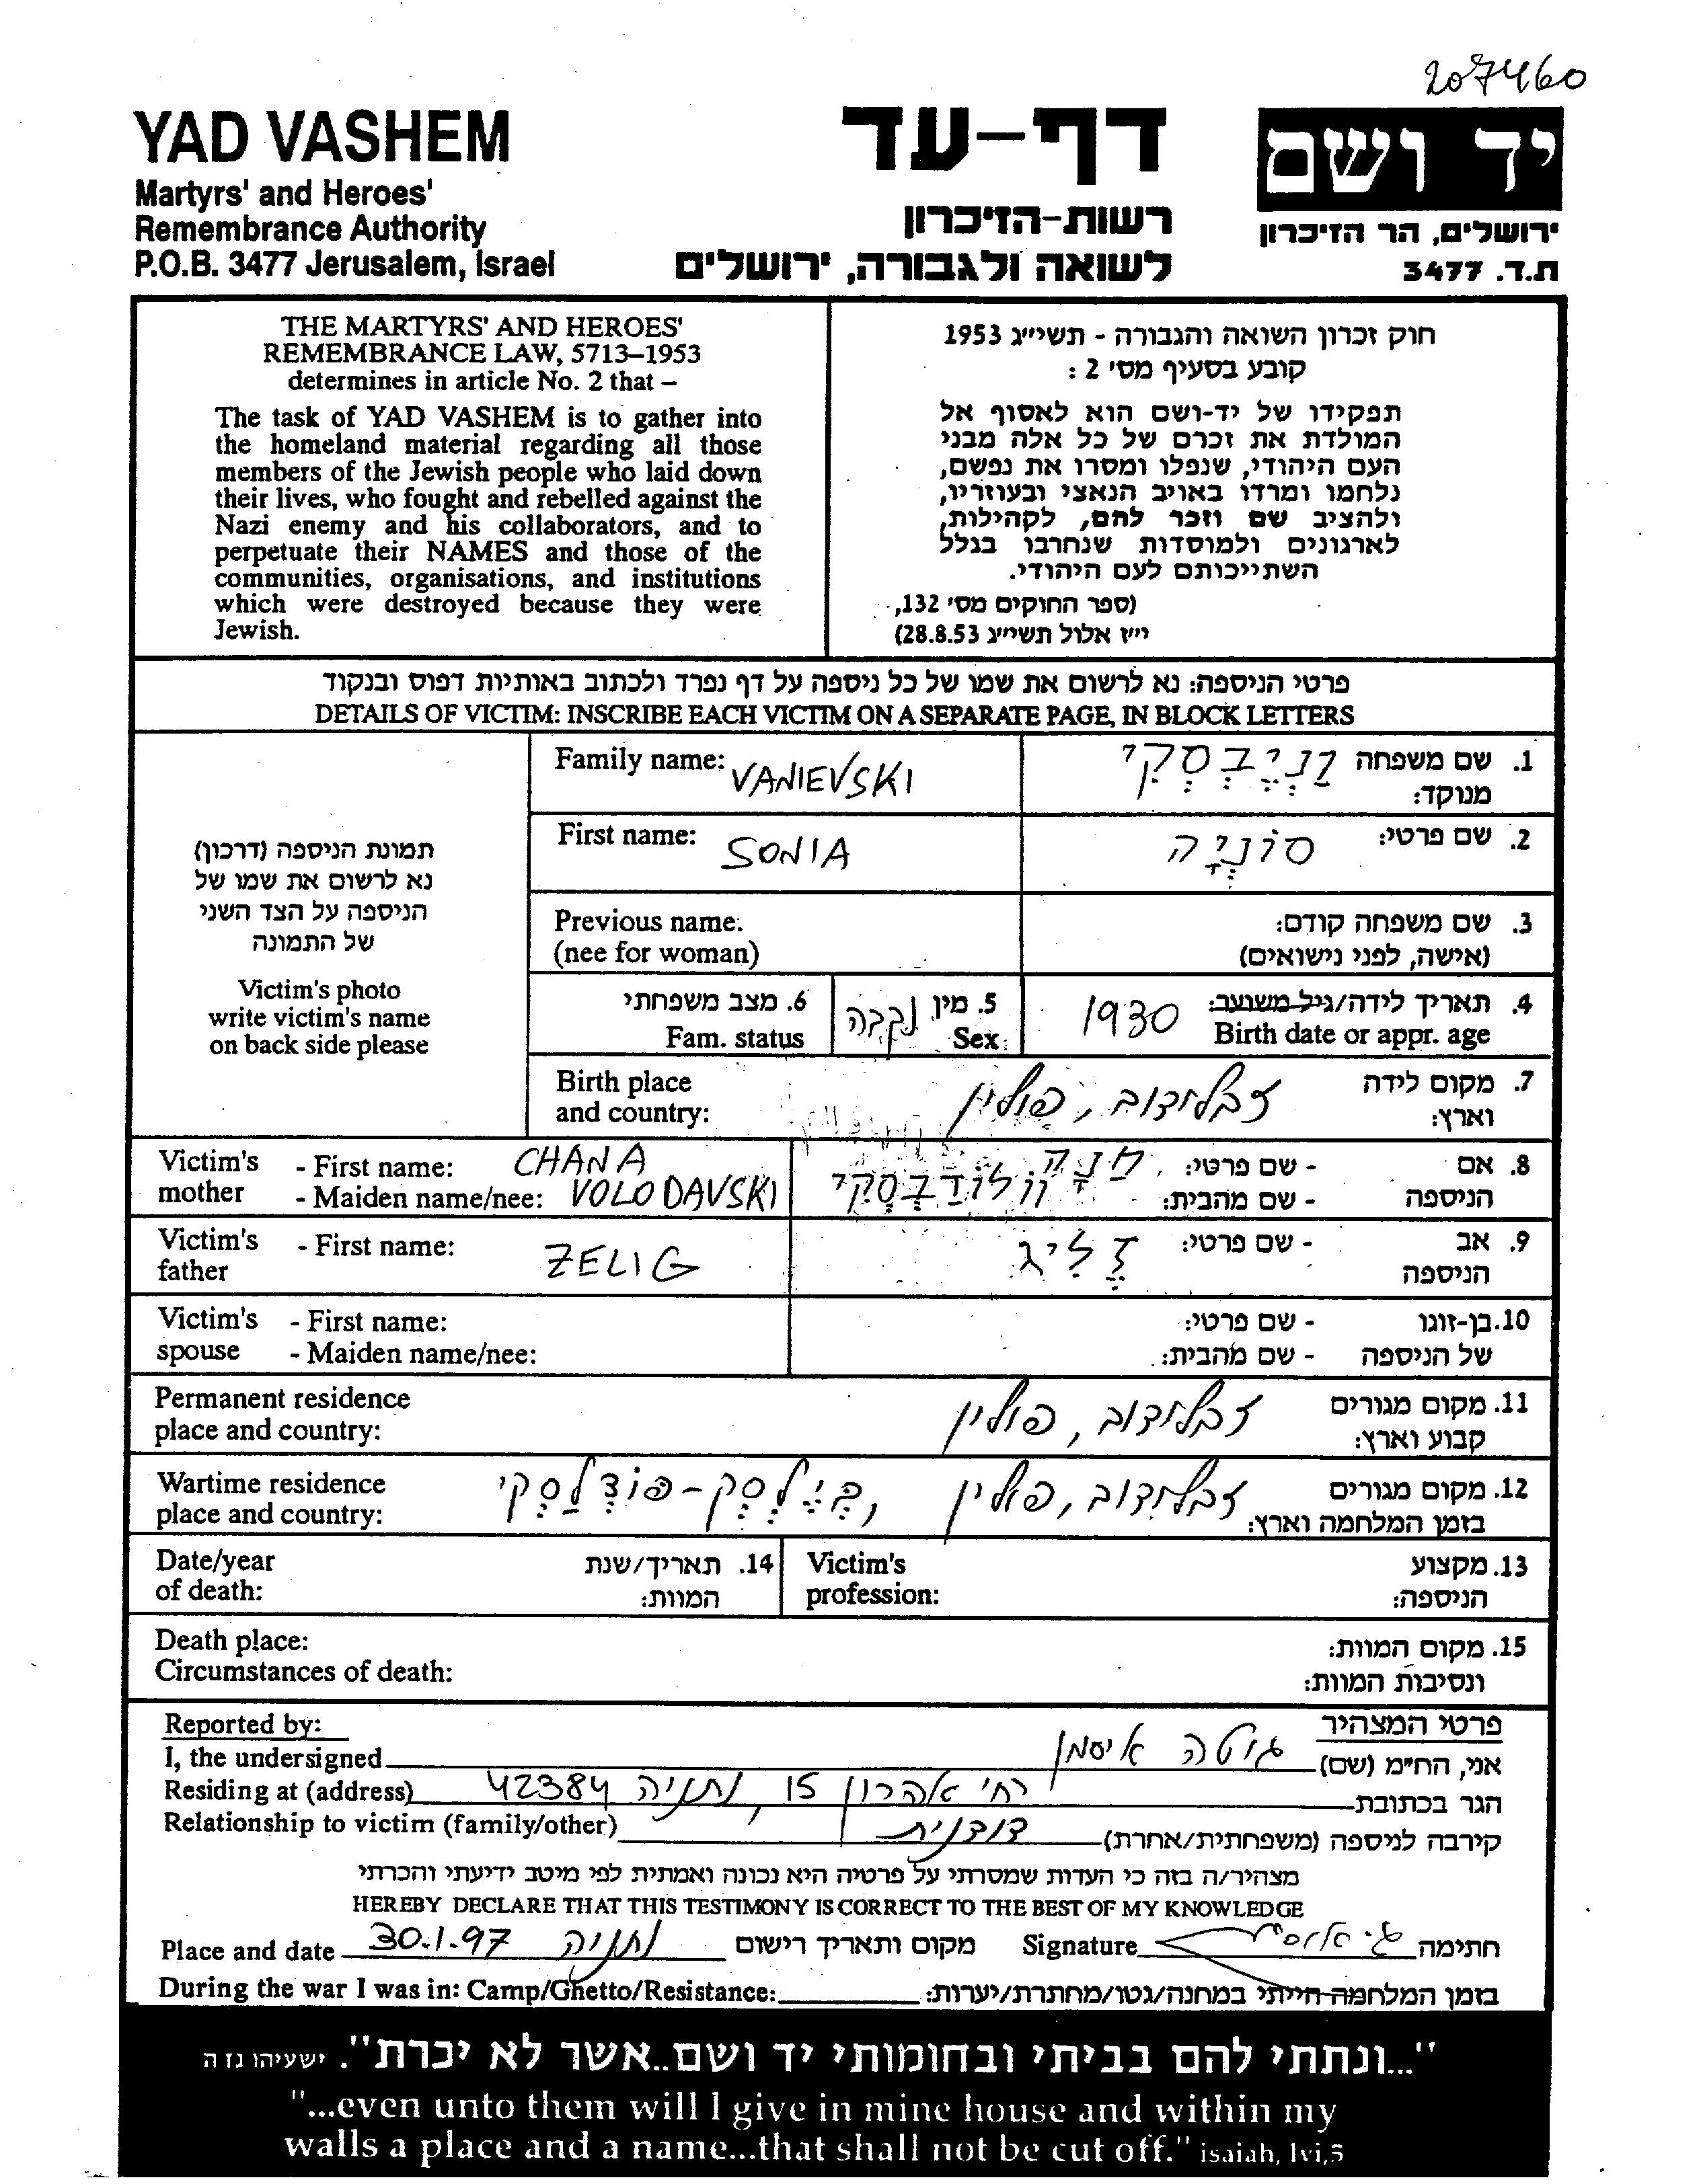 207460
YAD VASHEM
Martyrs' and Heroes'
Remembrance Authority
P.O.B. 3477 Jerusalem, Israel
דף-עד
רשות-הזיכרון
לשואה ולגבורה, ירושלים
יד ושם
ירושלים, הר הזיכרון
ת.ד. 3477
THE MARTYRS' AND HEROES'
REMEMBRANCE LAW, 5713–1953
determines in article No. 2 that –
The task of YAD VASHEM is to gather into
the homeland material regarding all those
members of the Jewish people who laid down
their lives, who fought and rebelled against the
Nazi enemy and his collaborators, and to
perpetuate their NAMES and those of the
communities, organisations, and institutions
which were destroyed because they were
Jewish.
חוק זכרון השואה והגבורה - תשי״ג 1953
קובע בסעיף מס׳ 2 :
תפקידו של יד-ושם הוא לאסוף אל
המולדת את זכרם של כל אלה מבני
העם היהודי, שנפלו ומסרו את נפשם,
נלחמו ומרדו באויב הנאצי ובעוזריו,
ולהציב שם וזכר להם, לקהילות,
לארגונים ולמוסדות שנחרבו בגלל
השתייכותם לעם היהודי.
(ספר החוקים מס׳ 132,
י״ז אלול תשי״ג 28.8.53)
פרטי הניספה: נא לרשום את שמו של כל ניספה על דף נפרד ולכתוב באותיות דפוס ובנקוד
DETAILS OF VICTIM: INSCRIBE EACH VICTIM ON A SEPARATE PAGE, IN BLOCK LETTERS
תמונת הניספה (דרכון)
נא לרשום את שמו של
הניספה על הצד השני
של התמונה
Victim's photo
write victim's name
on back side please
Family name: VANIEVSKI
1. שם משפחה וַנְיֶבְסְקִי
מנוקד:
First name: SONIA
2. שם פרטי: סוֹנְיָה
Previous name:
(nee for woman)
3. שם משפחה קודם:
(אישה, לפני נישואים)
4. תאריך לידה/גיל משוער: 1930
Birth date or appr. age
5. מין נקבה
Sex:
6. מצב משפחתי
Fam. status
Birth place
and country:
7. מקום לידה
וארץ: זבלודוב, פולין
Victim's mother - First name: CHANA
- Maiden name/nee: VOLODAVSKI
8. אם הניספה - שם פרטי: חַנָה
- שם מהבית: ווֹלוֹדַבְסְקִי
Victim's father - First name: ZELIG
9. אב הניספה - שם פרטי: זֶלִיג
Victim's spouse - First name:
- Maiden name/nee:
10. בן-זוגו של הניספה - שם פרטי:
- שם מהבית:
Permanent residence
place and country:
11. מקום מגורים
קבוע וארץ: זבלודוב, פולין
Wartime residence
place and country:
12. מקום מגורים
בזמן המלחמה וארץ: זבלודוב, פולין, בְּיֶלְסְק-פּוֹדְלַסְקִי
Date/year
of death:
14. תאריך/שנת
המוות:
Victim's
profession:
13. מקצוע
הניספה:
Death place:
Circumstances of death:
15. מקום המוות:
ונסיבות המוות:
Reported by:
פרטי המצהיר
I, the undersigned
אני, הח״מ (שם) גוטה איסמן
Residing at (address)
הגר בכתובת רח' אהרון 15, נתניה 42384
Relationship to victim (family/other)
קירבה לניספה (משפחתית/אחרת) דודנית
מצהיר/ה בזה כי העדות שמסרתי על פרטיה היא נכונה ואמתית לפי מיטב ידיעתי והכרתי
HEREBY DECLARE THAT THIS TESTIMONY IS CORRECT TO THE BEST OF MY KNOWLEDGE
Place and date 30.1.97 נתניה מקום ותאריך רישום
Signature חתימה
During the war I was in: Camp/Ghetto/Resistance:
בזמן המלחמה הייתי במחנה/גטו/מחתרת/יערות:
"...ונתתי להם בביתי ובחומותי יד ושם..אשר לא יכרת". ישעיהו נו ה
"...even unto them will I give in mine house and within my
walls a place and a name...that shall not be cut off." isaiah, lvi,5